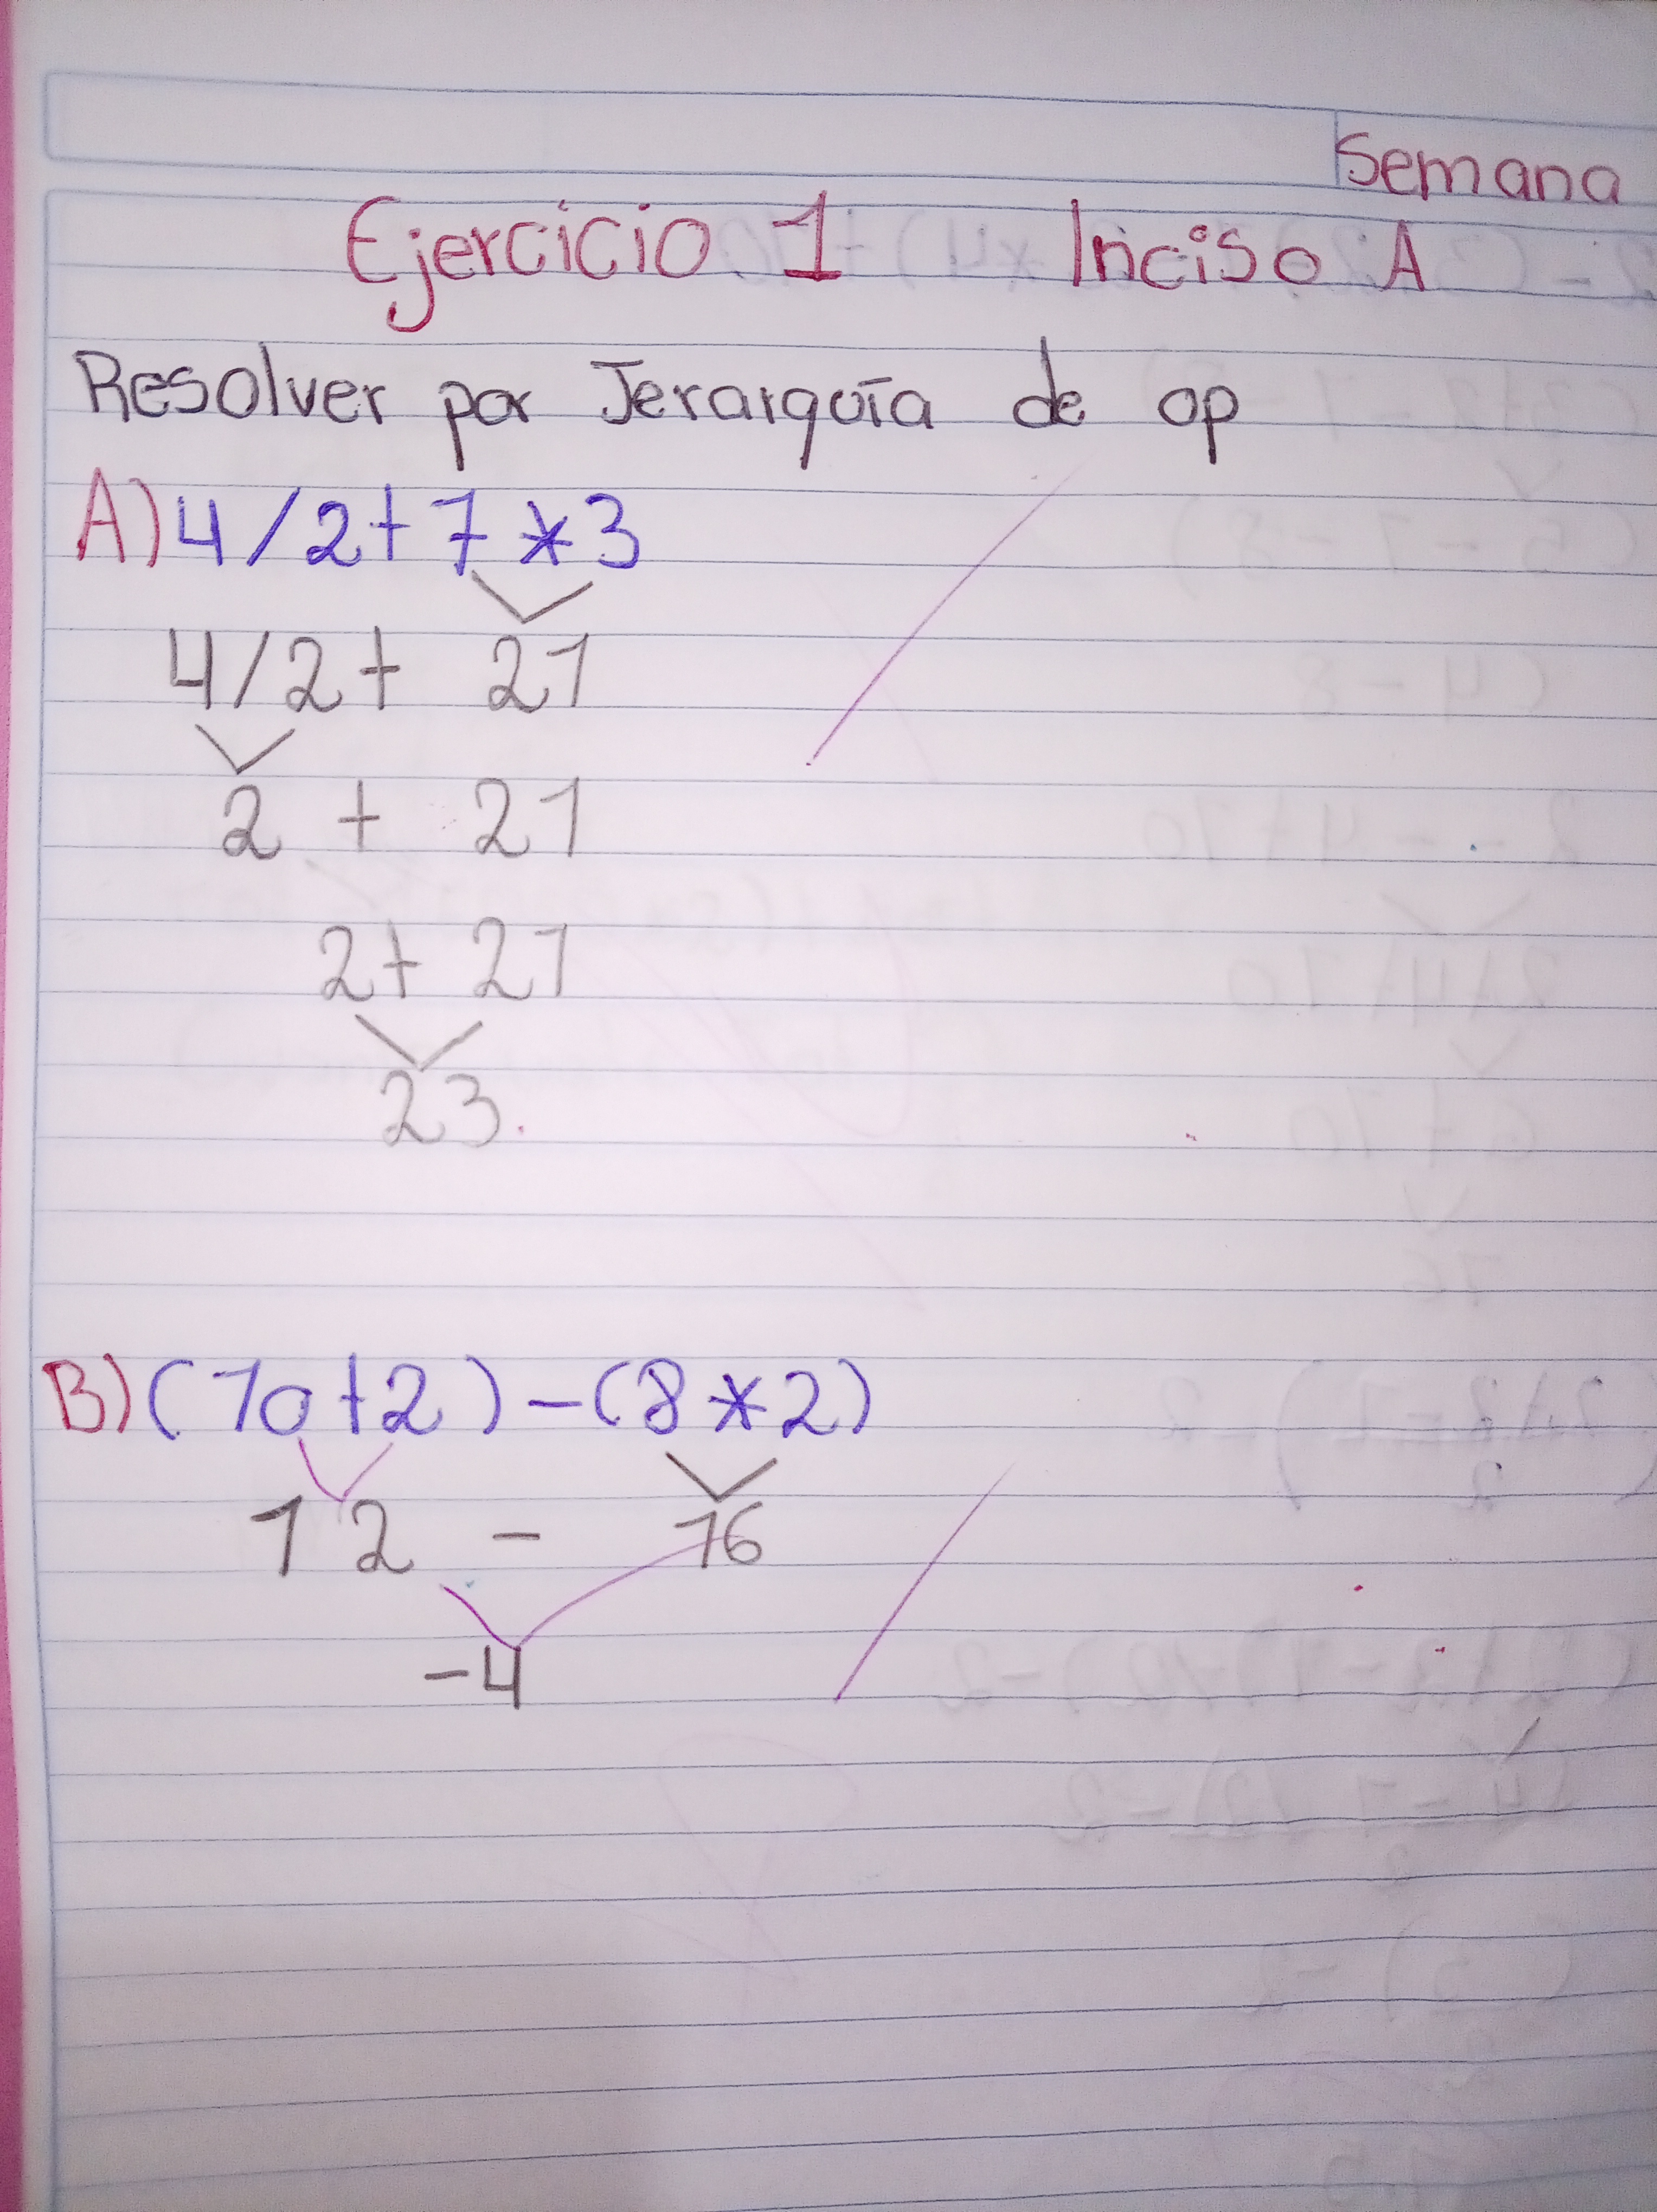 Semana
Ejercicio 1 Inciso A
Resolver por Jerarquía de op
A) 4/2+7*3
4/2+ 21
2 + 21
2+ 21
23.
B) (10+2)-(8*2)
12 - 16
-4